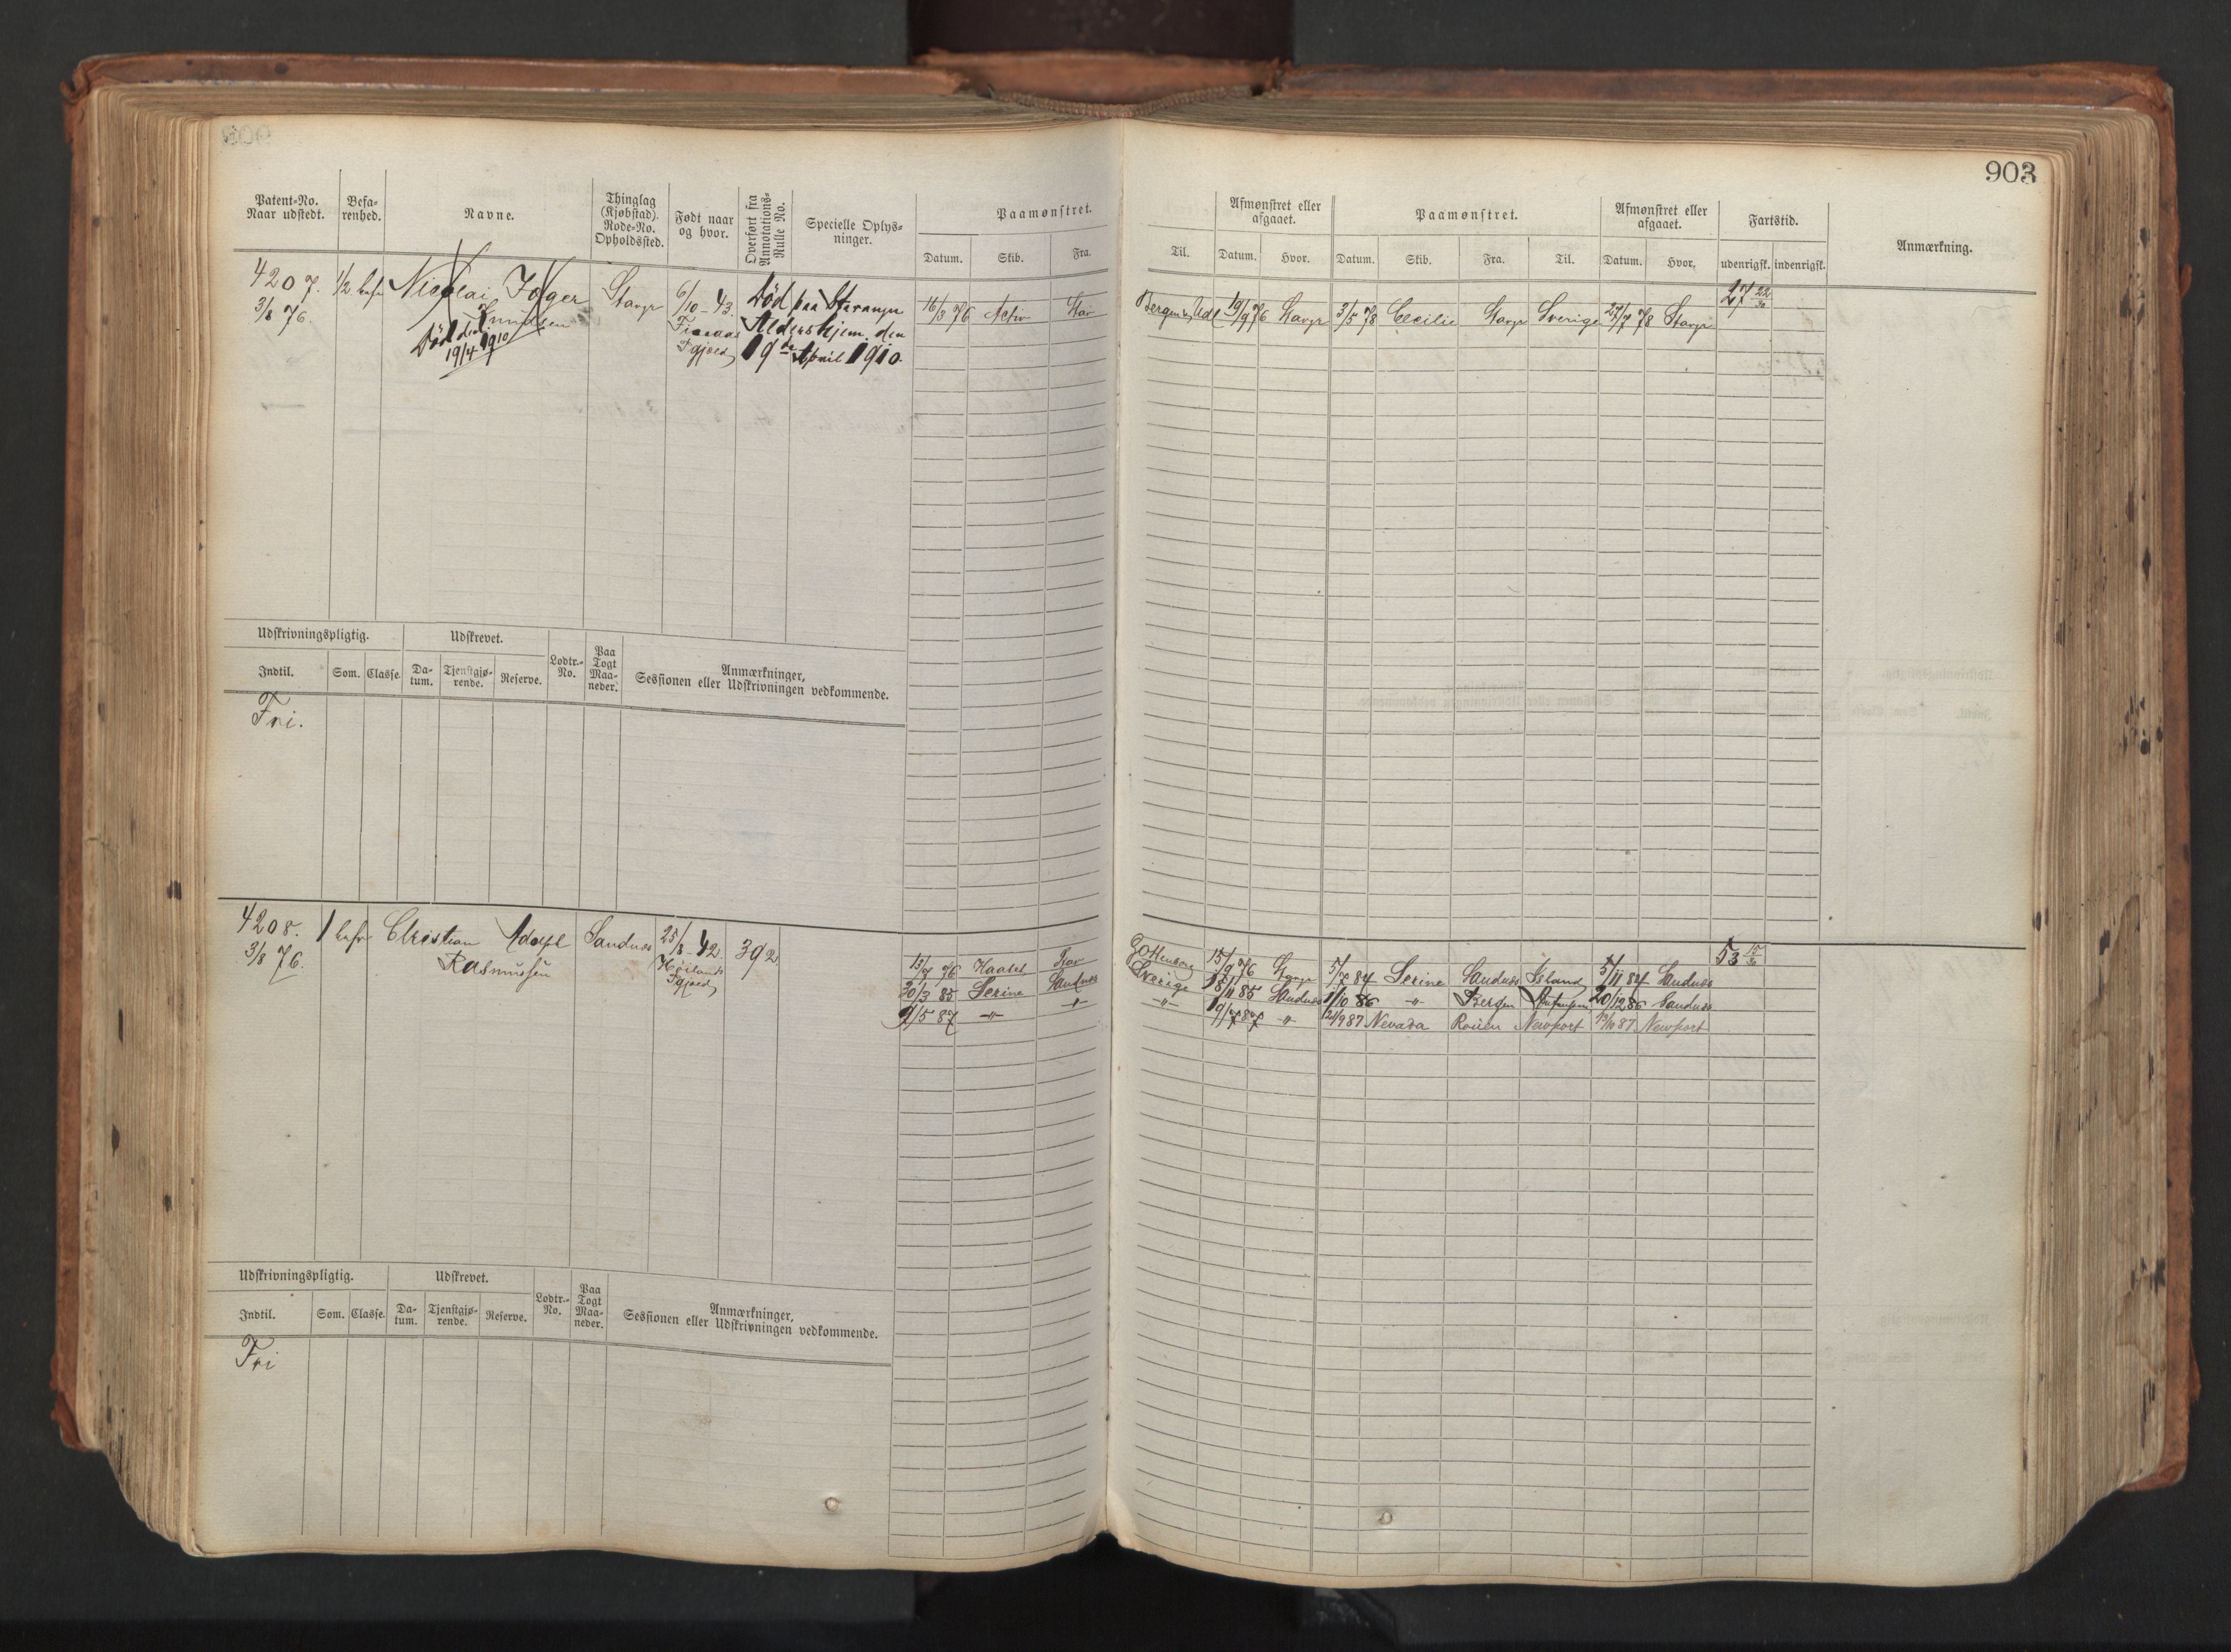 903
Patent-No. Naar udstedt.
Befarenhed.
Navne.
Thinglag (Kjøbstad). Rode-No. Opholdssted.
Født naar og hvor.
Overført fra Annotations-Rulle No.
Specielle Oplysninger.
Paamønstret.
Datum. Skib. Fra. Til.
Afmønstret eller afgaaet.
Datum. Hvor.
Paamønstret.
Datum. Skib. Fra. Til.
Afmønstret eller afgaaet.
Datum. Hvor.
Fartstid.
udenrigsk. indenrigsk.
Anmærkning.
4207. 1/2 befr Nicolai Folger Stavgr 6/10 - 43. Død paa Stavanger
3/8 76. Knudsen Aldershjem den
Død den 19/4 1910 Pgjæld 19de April 1910
16/3 76 Activ Stav 19/9 76 Stavgr 3/5 78 Cecilie Stavgr Sverige 27/7 78 Stavgr 22/30
Udskrivningspligtig. Udskrevet. Lodtr.-No. Paa Togt Maaneder. Anmærkninger, Sessionen eller Udskrivningen vedkommende.
Indtil. Som. Classe. Datum. Tjenstgjørende. Reserve.
Fri.
4208. 1 befr Christian Adolph Sandnæs 25/8 42. 392
3/8 76. Rasmussen Høilands Pgjæld
15/7 76 Stav Gottenborg 15/9 76 Stavgr 5/7 84 Serine Sandnæs Island 5/11 84 Sandnæs 53 15/30
30/3 85 Serine Sandnæs Sverige 18/11 85 Sandnæs 1/10 86 -"- Bergen 20/12 86 Sandnæs
9/5 87 -"- -"- -"- 19/7 87 -"- 21/9 87 Nevada Rouen Newport 13/10 87 Newport
Udskrivningspligtig. Udskrevet. Lodtr.-No. Paa Togt Maaneder. Anmærkninger, Sessionen eller Udskrivningen vedkommende.
Indtil. Som. Classe. Datum. Tjenstgjørende. Reserve.
Fri